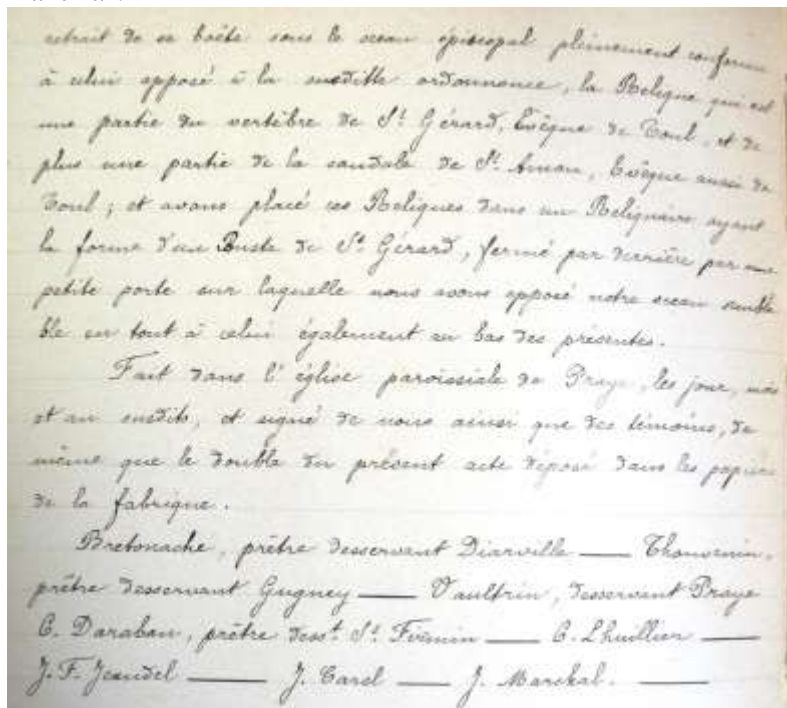 retrait de sa boëte sous le sceau épiscopal pleinement conforme
à celui apposé à la susditte ordonnance, la Relique qui est
une partie du vertèbre de St Gérard, Evêque de Toul, et de
plus une partie de la sandale de St Amon, Evêque aussi de
Toul ; et avons placé ces Reliques dans un Reliquaire ayant
la forme d'un Buste de St Gérard, fermé par derrière par une
petite porte sur laquelle nous avons apposé notre sceau sembla
ble en tout à celui également au bas des présentes.
Fait dans l'église paroissiale de Praye, les jour, mois
et an susdits, et signé de nous ainsi que des témoins, de
même que le double du présent acte déposé dans les papiers
de la fabrique.
Bretonache, prêtre desservant Diarville — Thouvenin,
prêtre desservant Gugney — Vaultrin, desservant Praye
C. Daraban, prêtre desst St Firmin — C. Lhuillier —
J. F. Jeandel — J. Carel — J. Marchal. —